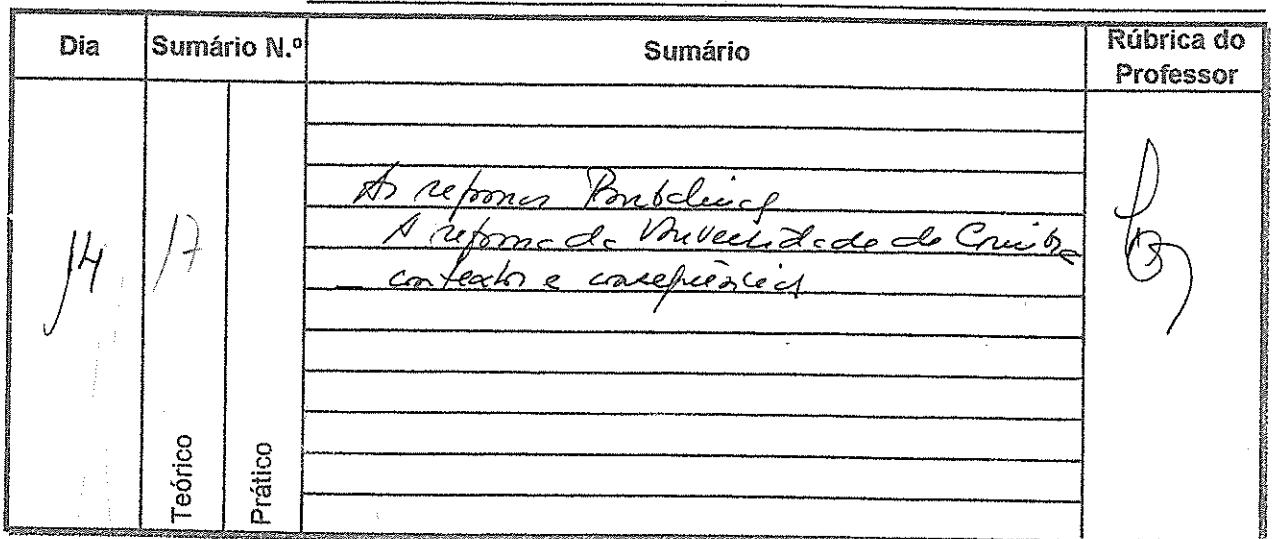 Dia Sumário N.º Sumário Rúbrica do
Professor
As reformas Pombalinas
14 17 A reforma da Universidade de Coimbra
contextos e consequências
Teórico Prático